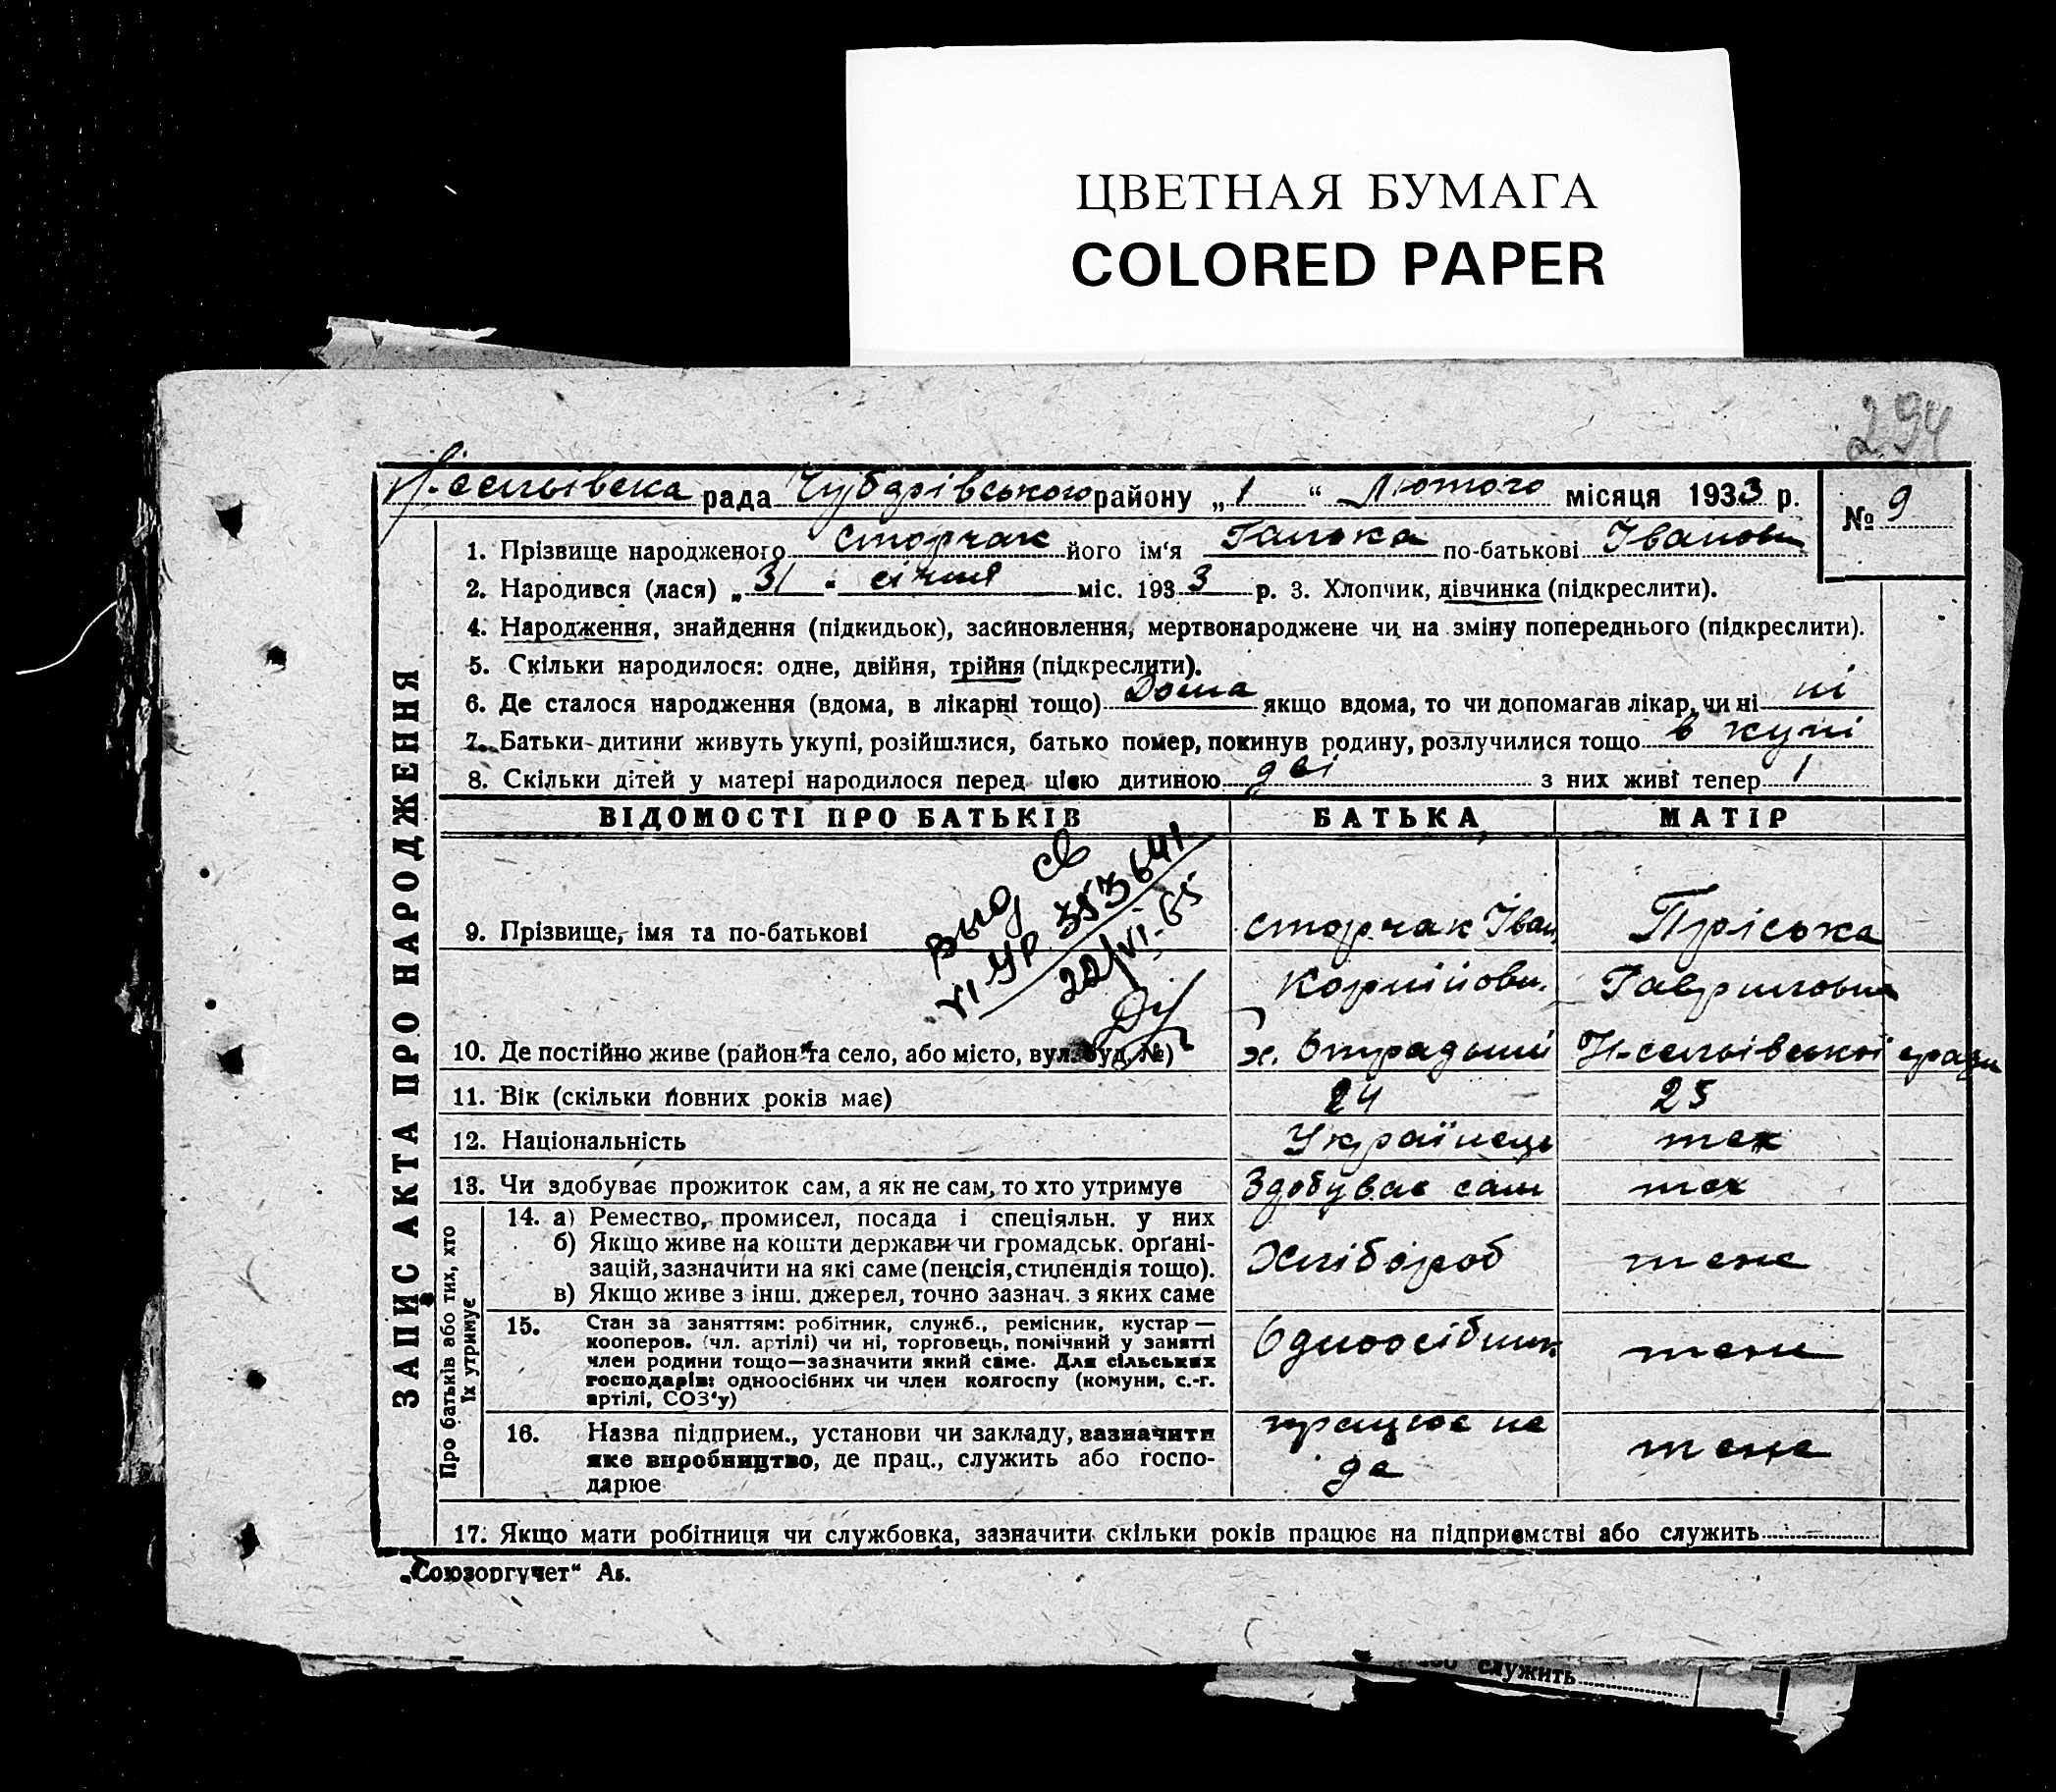 ЦВЕТНАЯ БУМАГА
COLORED PAPER
294
рада Чубарівського району „1“ Лютого місяця 1933 р.
№ 9
1. Прізвище народженого Сторчак його ім'я Галька по-батькові Іванови
2. Народився (лася) „31“ січня міс. 1933 р. 3. Хлопчик, дівчинка (підкреслити).
4. Народження, знайдення (підкидьок), засиновлення, мертвонароджене чи на зміну попереднього (підкреслити).
5. Скільки народилося: одне, двійня, трійня (підкреслити).
6. Де сталося народження (вдома, в лікарні тощо) Дома якщо вдома, то чи допомагав лікар, чи ні ні
7. Батьки дитини живуть укупі, розійшлися, батько помер, покинув родину, розлучилися тощо в купі
8. Скільки дітей у матері народилося перед цією дитиною дві з них живі тепер 1
ЗАПИС АКТА ПРО НАРОДЖЕННЯ
ВІДОМОСТІ ПРО БАТЬКІВ БАТЬКА МАТІР
выд св
VI УР 353641
22/VI-65
9. Прізвище, імя та по-батькові Сторчак Іван Пріська
Корнійови. Гавриловна
10. Де постійно живе (район та село, або місто, вул. буд. №) х. Отрадный Н-сельівської ради
11. Вік (скільки повних років має) 24 25
12. Національність Українець теж
13. Чи здобуває прожиток сам, а як не сам, то хто утримує Здобуває сам теж
Про батьків або тих, хто їх утримує
14. а) Ремество, промисел, посада і спеціяльн. у них
б) Якщо живе на кошти держави чи громадськ. орґані-
зацій, зазначити на які саме (пенсія, стипендія тощо).
в) Якщо живе з інш. джерел, точно зазнач. з яких саме
Хлібороб теже
15. Стан за заняттям: робітник, служб., ремісник, кустар —
кооперов. (чл. артілі) чи ні, торговець, помічний у занятті
член родини тощо—зазначити який саме. Для сільських
господарів: одноосібних чи член колгоспу (комуни, с.-г.
артілі, СОЗ'у)
Одноосібник теже
16. Назва підприєм., установи чи закладу, зазначити
яке виробництво, де прац., служить або госпо-
дарює
працює не
де
теже
17. Якщо мати робітниця чи службовка, зазначити скільки років працює на підприємстві або служить
„Союзоргучет“
служить